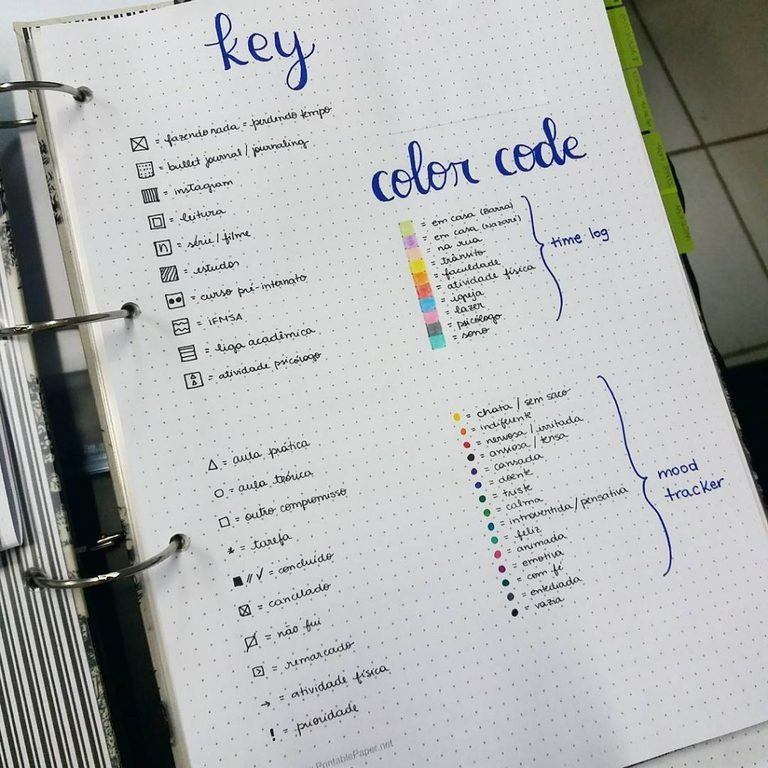 key
= fazendo nada = perdendo tempo
= bullet journal / journaling
= instagram
= leitura
n = série / filme
= estudos
= curso pré-internato
= IFMSA
= liga acadêmica
= atividade psicólogo
△ = aula prática
○ = aula teórica
□ = outro compromisso
* = tarefa
■ // ✓ = concluído
☒ = cancelado
= não fui
= remarcado
→ = atividade física
! = prioridade
color code
= em casa (Barra)
= em casa (Nazaré)
= na rua
= trânsito
= faculdade
= atividade física
= igreja
= lazer
= psicólogo
= sono
time log
= chata / sem saco
= indiferente
= nervosa / irritada
= ansiosa / tensa
= cansada
= doente
= triste
= calma
= introvertida / pensativa
= feliz
= animada
= emotiva
= com fé
= entediada
= vazia
mood
tracker
PrintablePaper.net